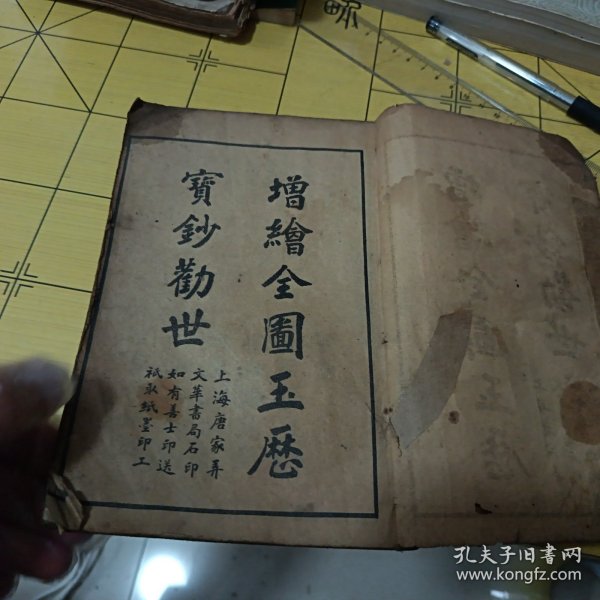 增繪全圖玉歷
寶鈔勸世
上海唐家弄
文華書局石印
如有善士印送
祇取紙墨印工
孔夫子旧書网
www.kongfz.com